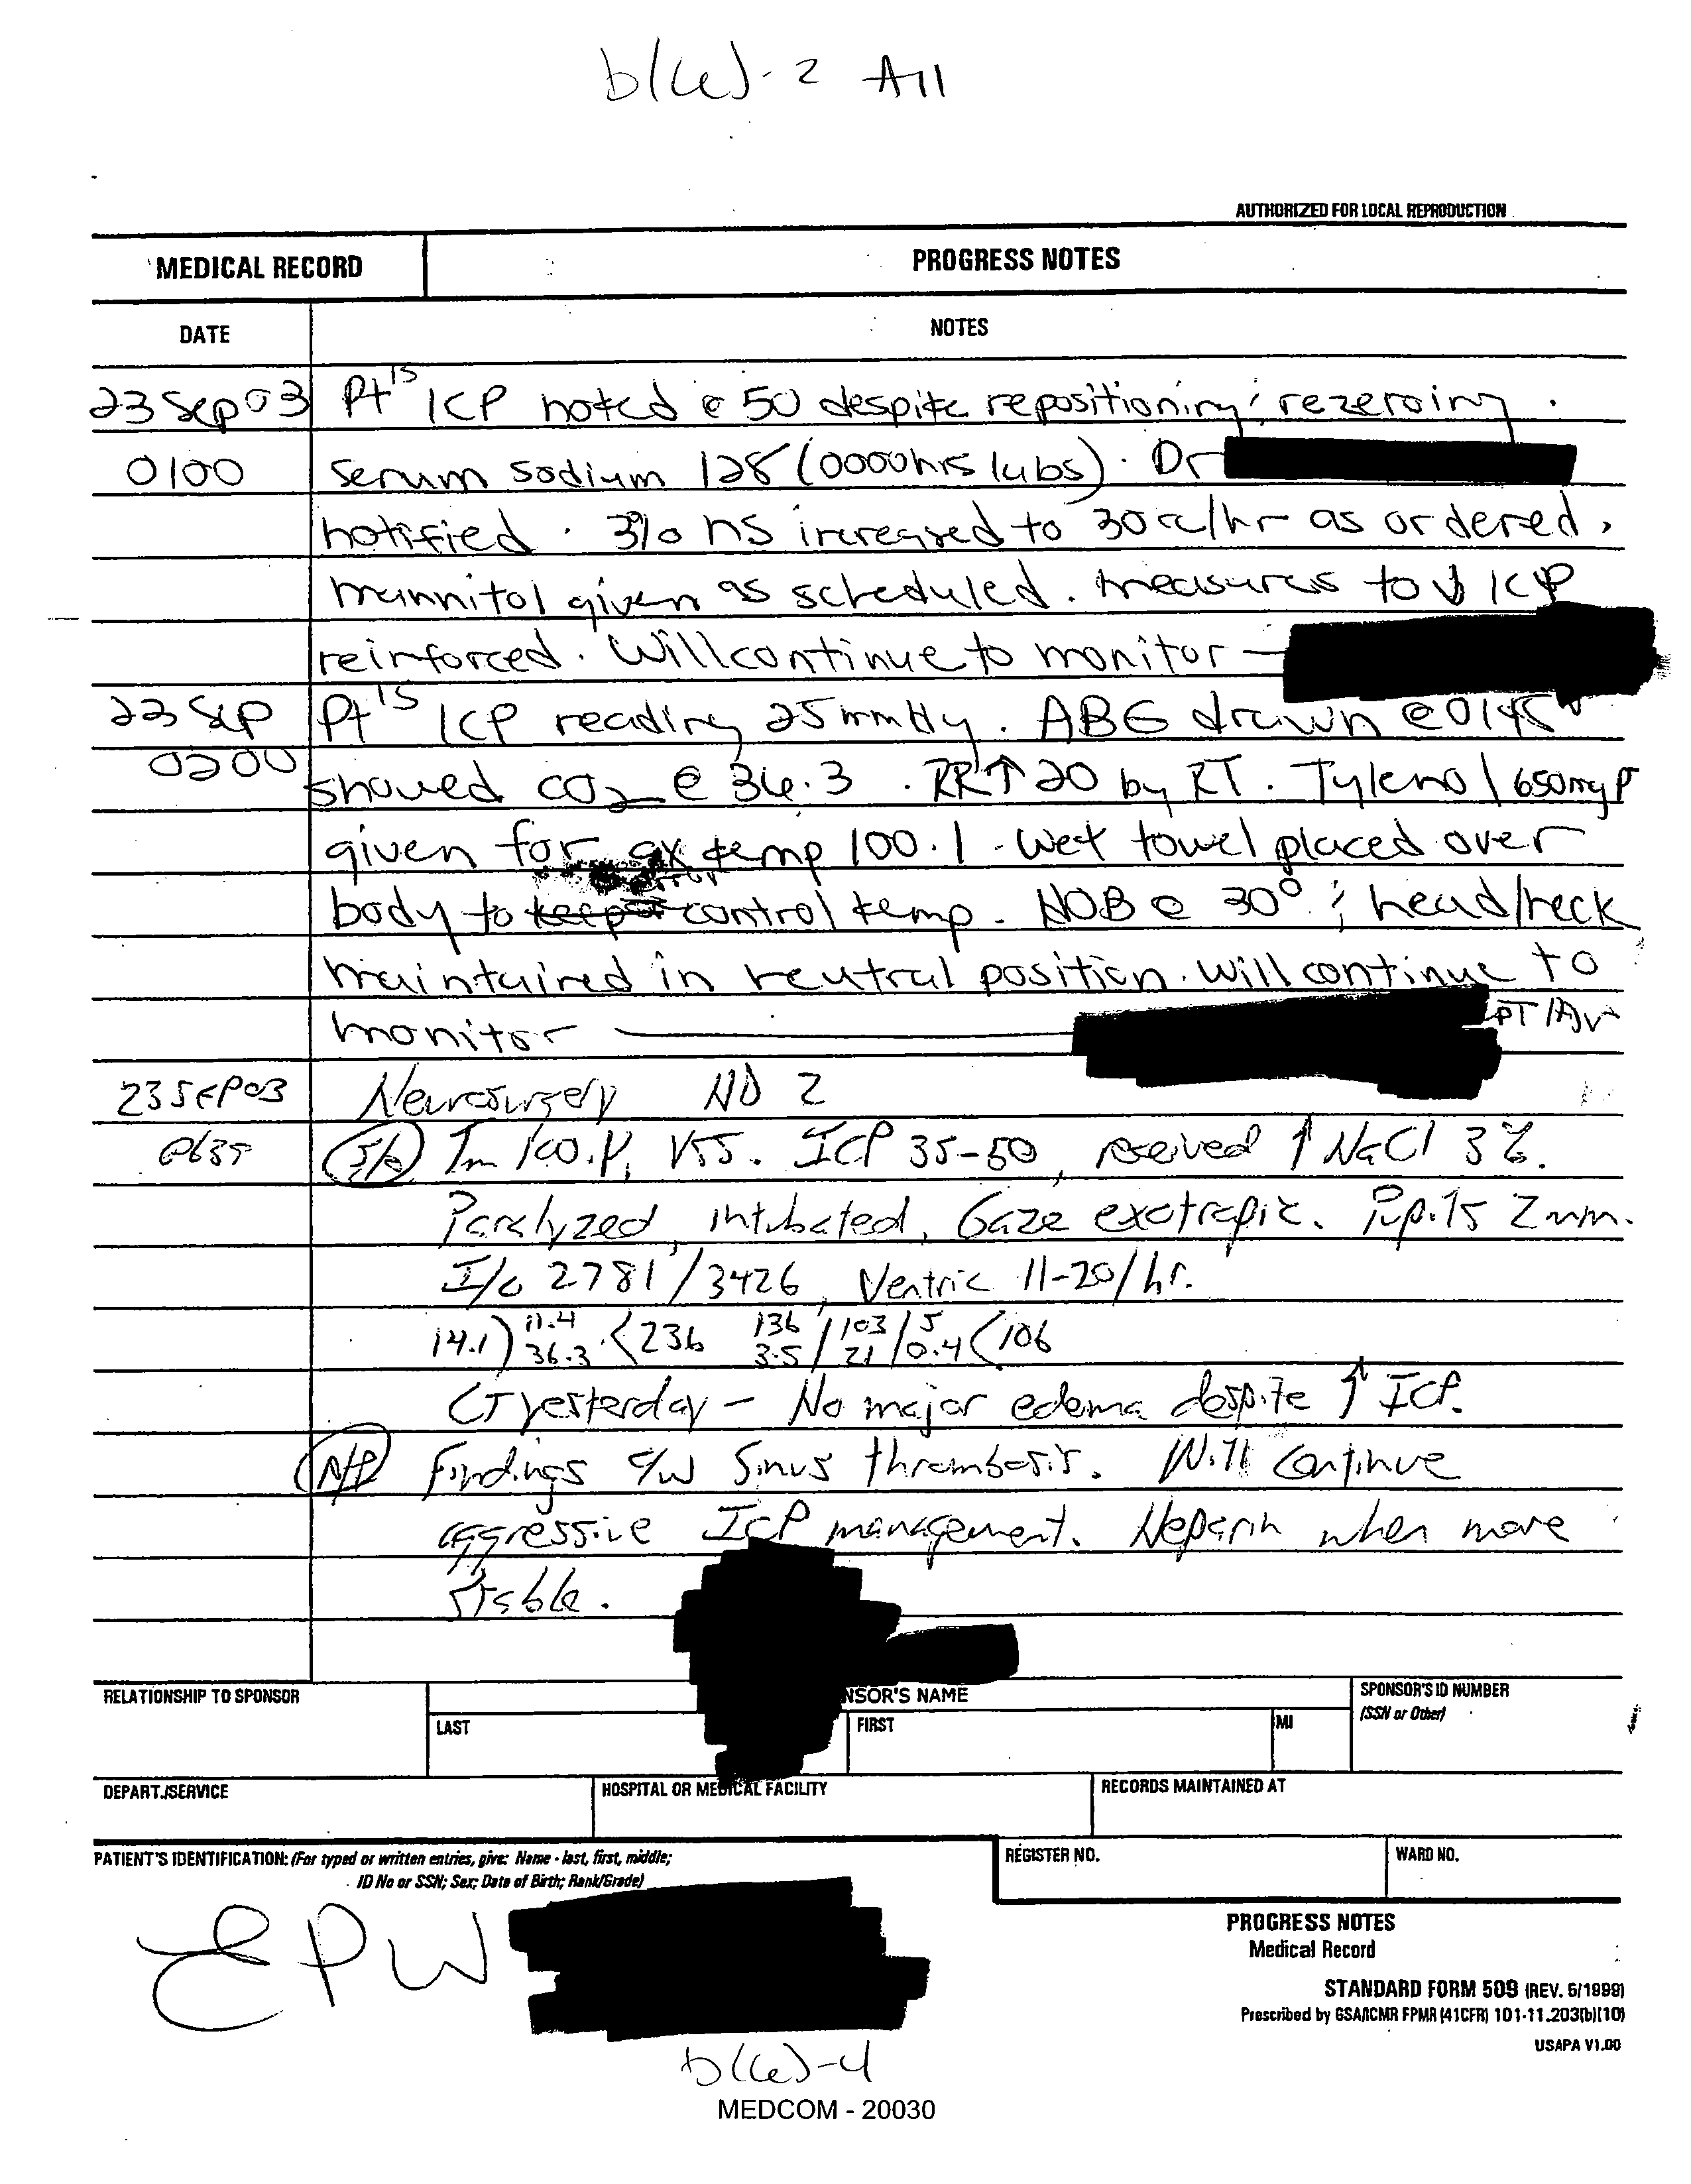 b(6)-2 All
AUTHORIZED FOR LOCAL REPRODUCTION
MEDICAL RECORD
PROGRESS NOTES
DATE
NOTES
23 Sep 03 Pt's ICP noted @ 50 despite repositioning; rezeroing.
0100 serum sodium 128 (0000hrs labs). Dr
notified. 3% NS increased to 30cc/hr as ordered.
mannitol given as scheduled. measures to ↓ ICP
reinforced. Will continue to monitor
23 Sep Pt's ICP reading 25mmHg. ABG drawn @ 0145
0200 showed CO2 @ 36.3. RR↑ 20 by RT. Tylenol 650mg
given for ax temp 100.1. Wet towel placed over
error
body to control temp. HOB @ 30°; head/neck
maintained in neutral position. Will continue to
monitor
23 SEP 03 Neurosurgery HD 2
0635 VSS. ICP 35-50, received ↑ NaCl 3%.
Paralyzed, intubated, Gaze exotropic. Pupils 2mm.
I/O 2781/3426, Ventric 11-20/hr.
14.1) 11.4 36.3 <236 136 3.5 / 103 21 / 5 0.4 <106
CT yesterday - No major edema despite ↑ ICP.
A/P Findings c/w Sinus thrombosis. Will continue
aggressive ICP management. Heparin when more
stable.
RELATIONSHIP TO SPONSOR
NSOR'S NAME
SPONSOR'S ID NUMBER
(SSN or Other)
LAST
FIRST
MI
DEPART./SERVICE
HOSPITAL OR MEDICAL FACILITY
RECORDS MAINTAINED AT
PATIENT'S IDENTIFICATION: (For typed or written entries, give: Name - last, first, middle;
ID No or SSN; Sex; Date of Birth; Rank/Grade)
REGISTER NO.
WARD NO.
EPW
PROGRESS NOTES
Medical Record
STANDARD FORM 509 (REV. 5/1999)
Prescribed by GSA/ICMR FPMR (41CFR) 101-11.203(b)(10)
USAPA V1.00
b(6)-4
MEDCOM - 20030